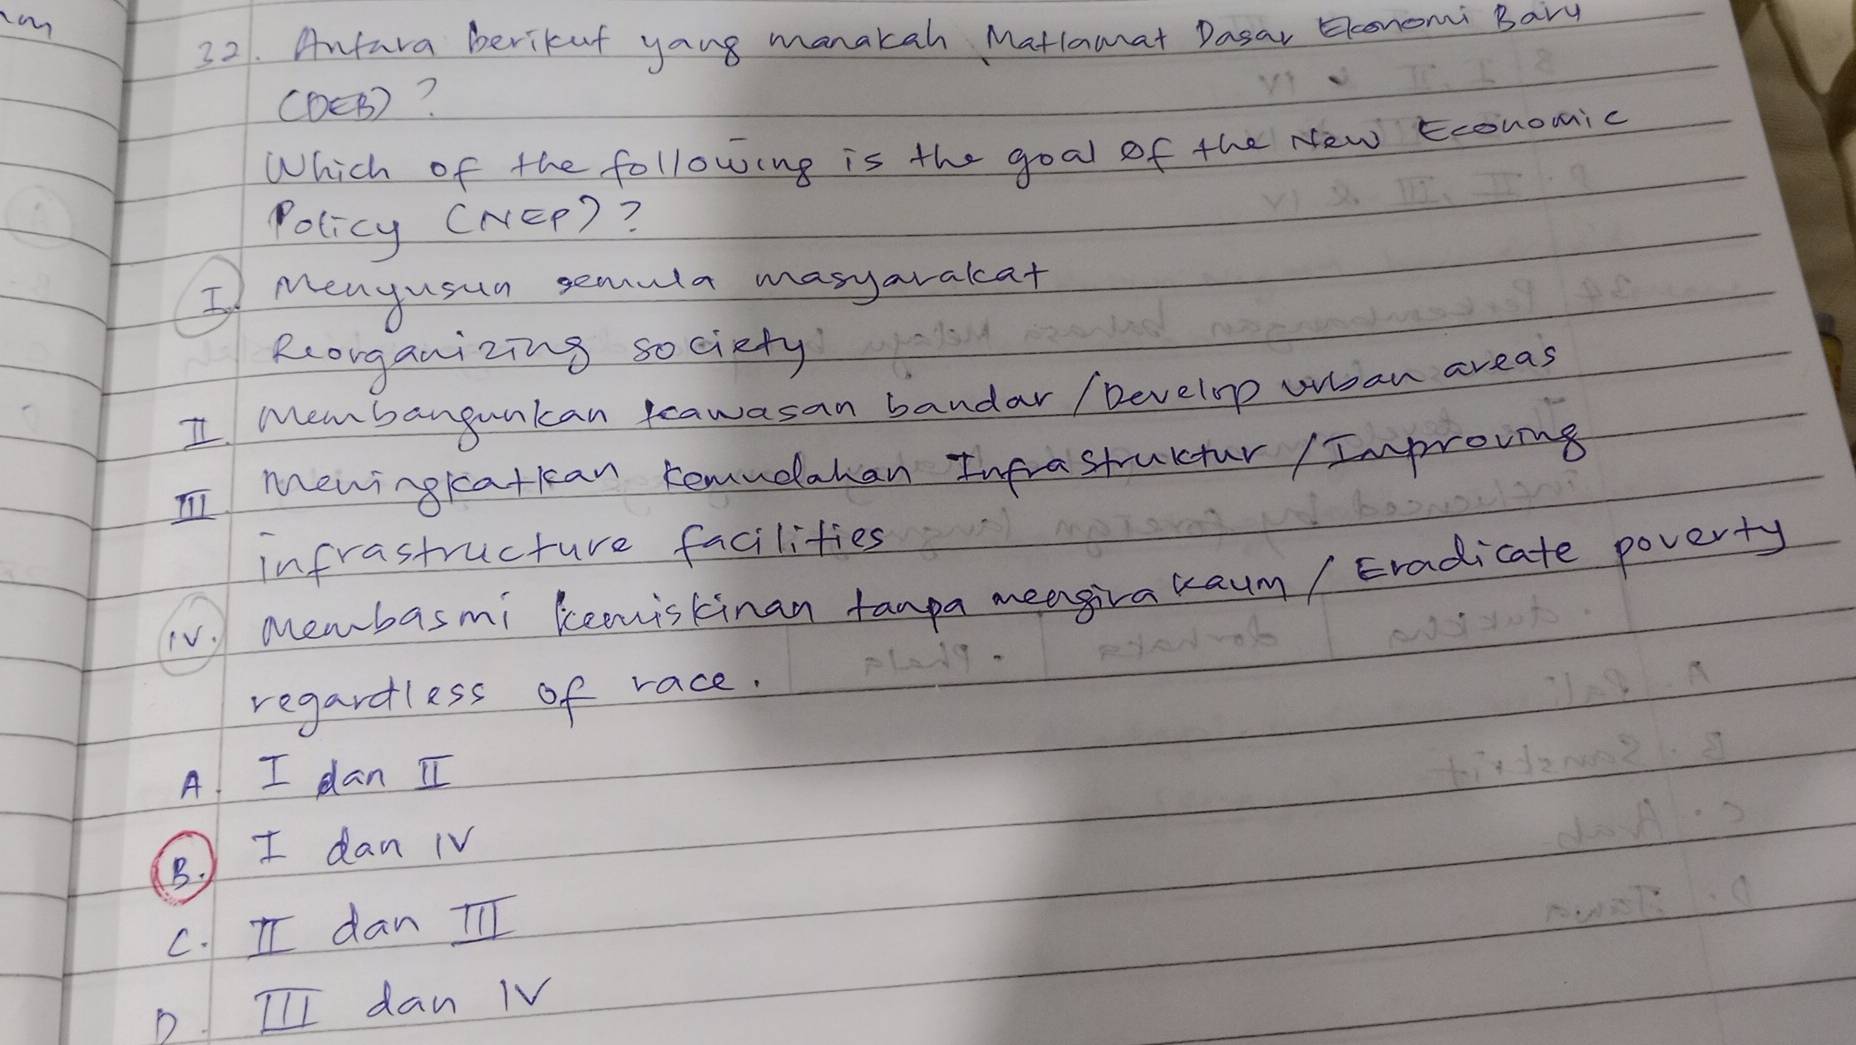 32. Antara berikut yang manakah Matlamat Dasar Ekonomi Baru
(DEB)?
Which of the following is the goal of the New Economic
Policy (NEP)?
I. Menyusun semula masyarakat
Reorganizing society
II. Membangunkan kawasan bandar / Develop urban areas
III. Meningkatkan kemudahan Infrastruktur / Improving
infrastructure facilities
IV. Membasmi kemiskinan tanpa mengira kaum / Eradicate poverty
regardless of race.
A. I dan II
B. I dan IV
C. II dan III
D. III dan IV